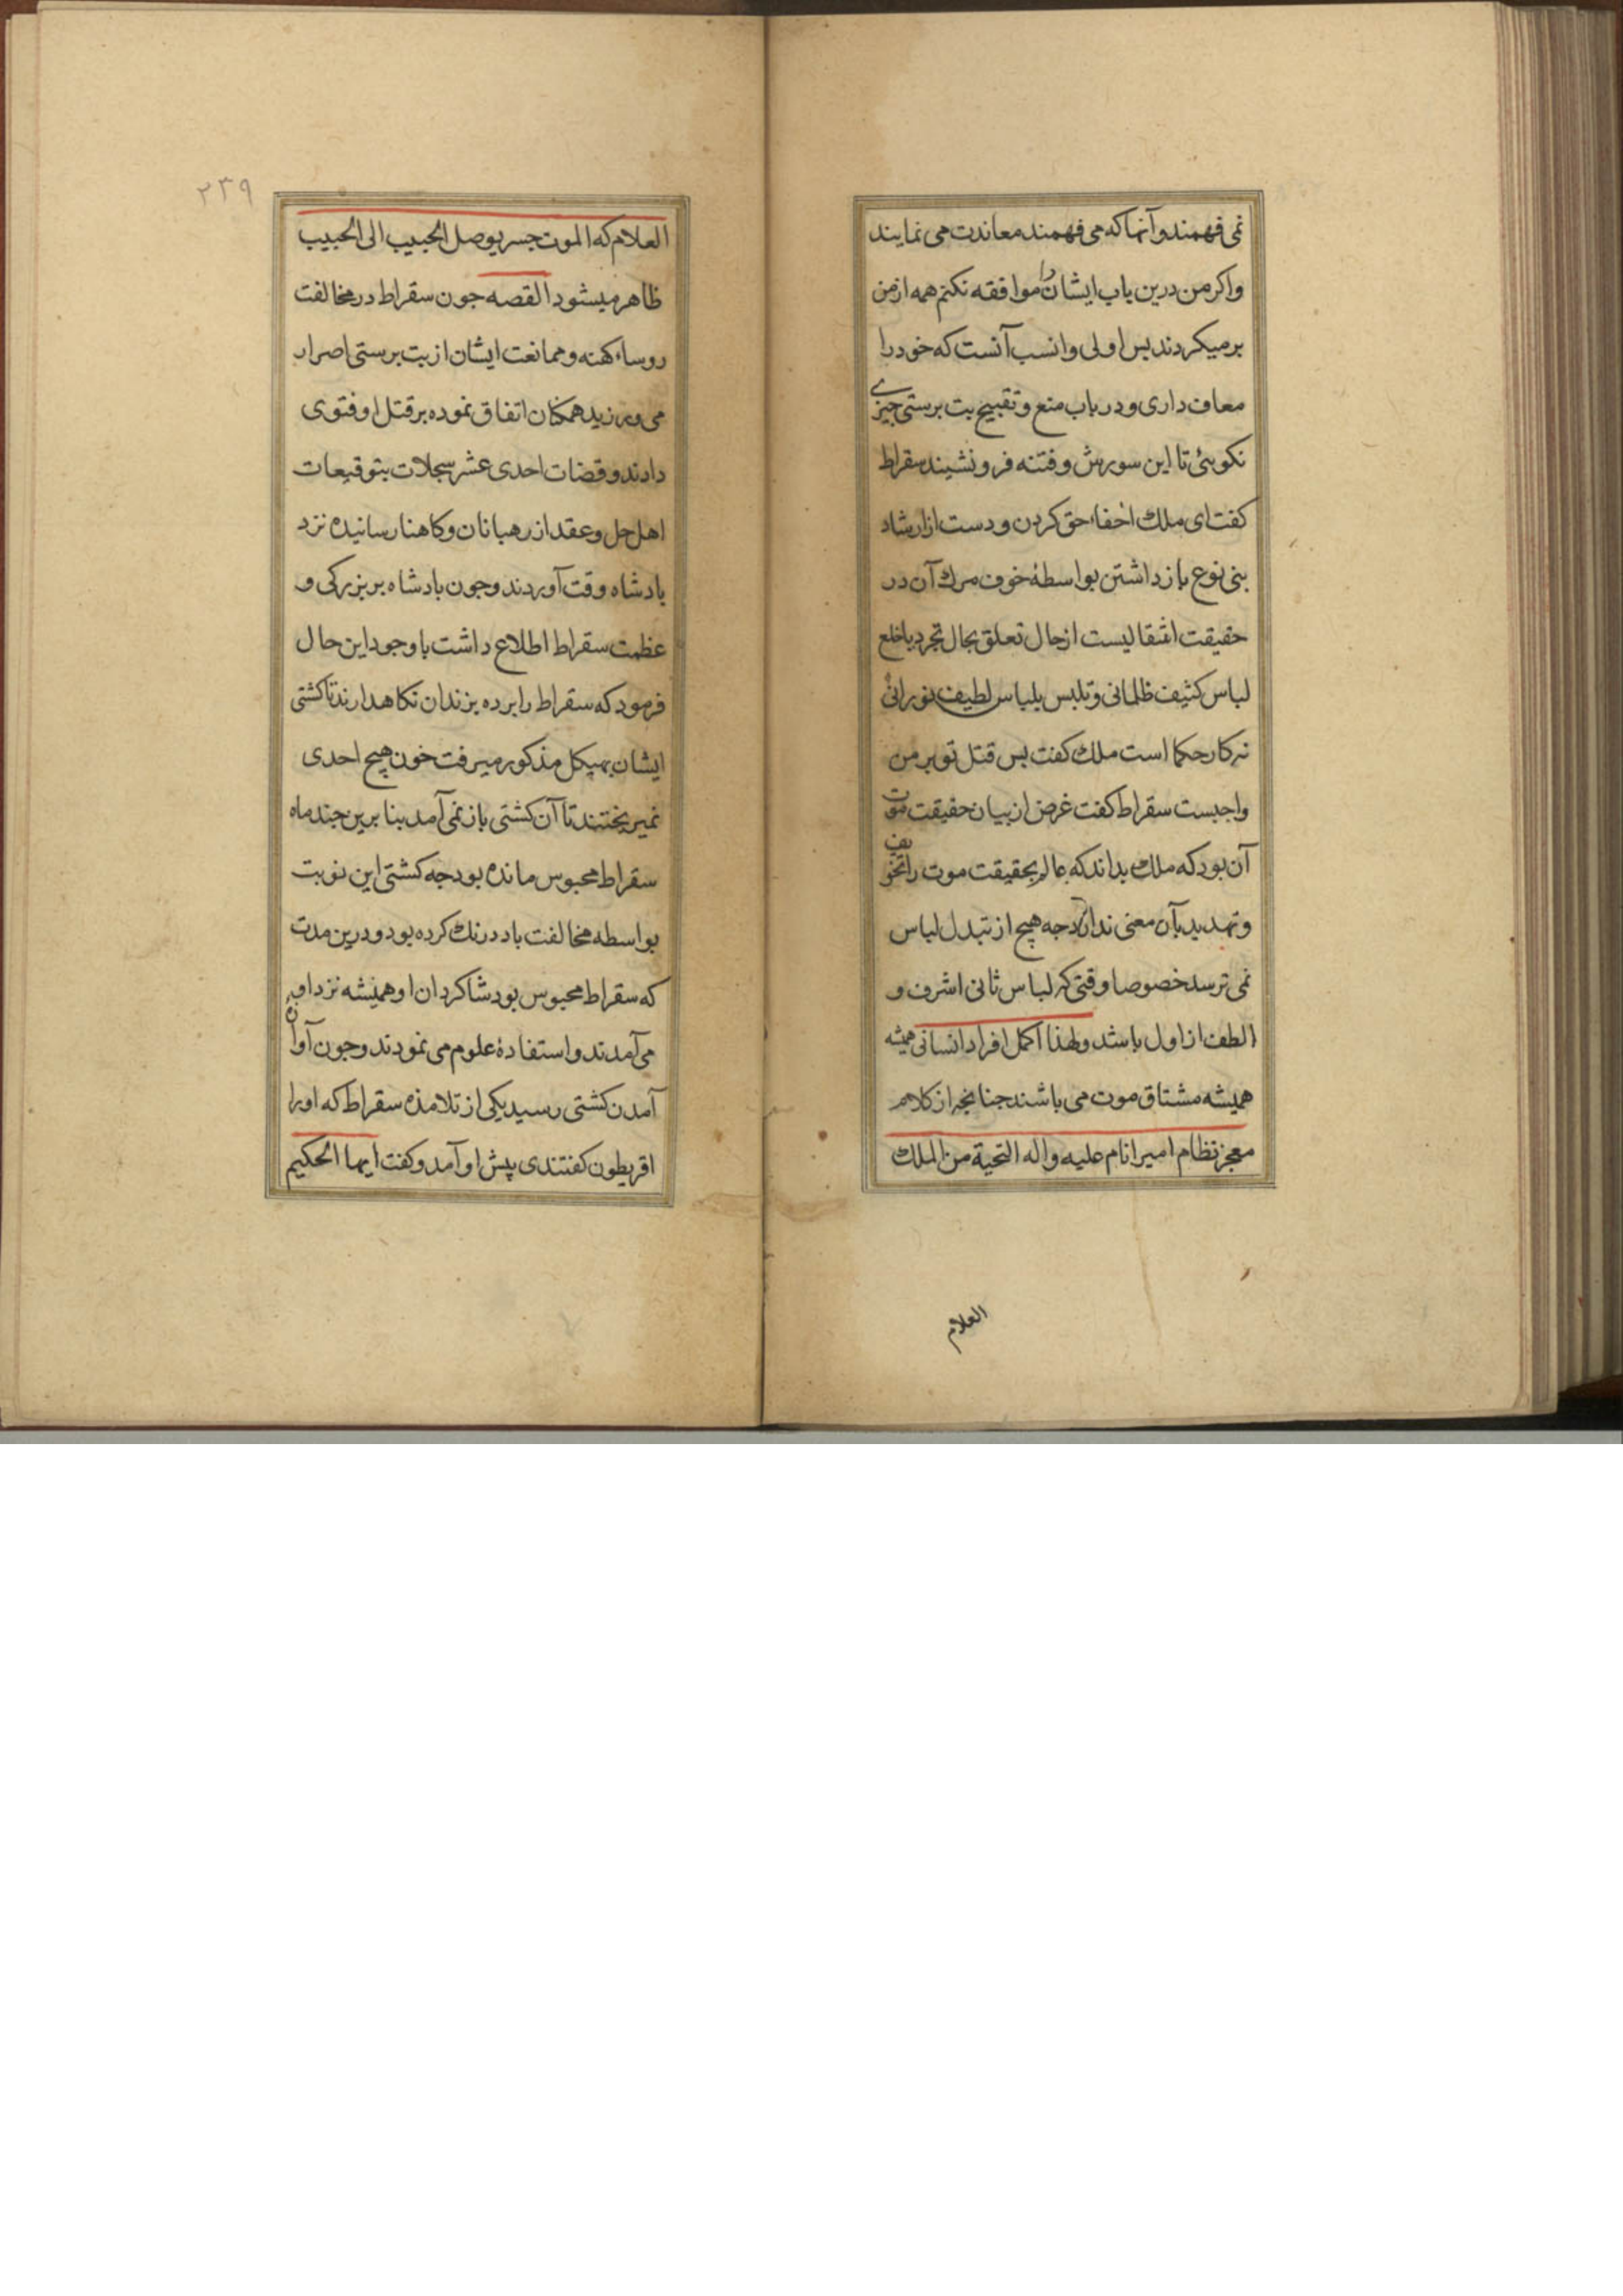 نمی فهمند و آنها که می فهمند معاندت می نمایند
و اکر من درین باب ایشان را موافقه نکنم همه از من
بر میکردند بس اولی و انسب آنست که خود را
معاف داری و در باب منع و تقبیح بت برستی جیزے
نکوئی تا این سورش و فتنه فرو نشیند سقراط
کفت ای ملک اخفاء حق کردن و دست از ارشاد
بنی نوع باز داشتن بواسطهٔ خوف مرك آن در
حقیقت انتقالیست از حال تعلق بحال تجرد یا خلع
لباس کثیف ظلمانی و تلبس بلباس لطیف نورانی
نه کار حکما است ملک کفت بس قتل تو بر من
واجبست سقراط کفت غرض از بیان حقیقت موت
آن بود که ملک بداند که عالم بحقیقت موت را تخویف
و تهدید بآن معنی ندارد جه هیج از تبدل لباس
نمی ترسد خصوصا وقتی که لباس ثانی اشرف و
الطف از اول باشد و لهذا اکمل افراد انسانی همیشه
همیشه مشتاق موت می باشند جنانجه از کلام
معجز نظام امیر انام علیه و اله التحیة من الملک
العلام
۲۳۹
العلام که الموت جسر یوصل الحبیب الی الحبیب
ظاهر میشود القصه جون سقراط در مخالفت
روساء کهنه و ممانعت ایشان از بت برستی اصرار
می ورزید همکنان اتفاق نموده بر قتل او فتوی
دادند و قضات احدی عشر سجلات بتوقیعات
اهل حل و عقد از رهبانان و کاهنان رسانیده نزد
بادشاه وقت آوردند و جون بادشاه بر بزرکی و
عظمت سقراط اطلاع داشت با وجود این حال
فرمود که سقراط را برده بزندان نکاهدارند تا کشتی
ایشان بهیکل مذکور میرفت خون هیج احدی
نمیریختند تا آن کشتی باز نمی آمد بنا برین جند ماه
سقراط محبوس مانده بود جه کشتی این نوبت
بواسطه مخالفت باد درنك کرده بود و درین مدت
که سقراط محبوس بود شاکردان او همیشه نزد او
می آمدند و استفادهٔ علوم می نمودند و جون آوان
آمدن کشتی رسید یکی از تلامذه سقراط که او را
اقریطون کفتندی پیش او آمد و کفت ایها الحکیم